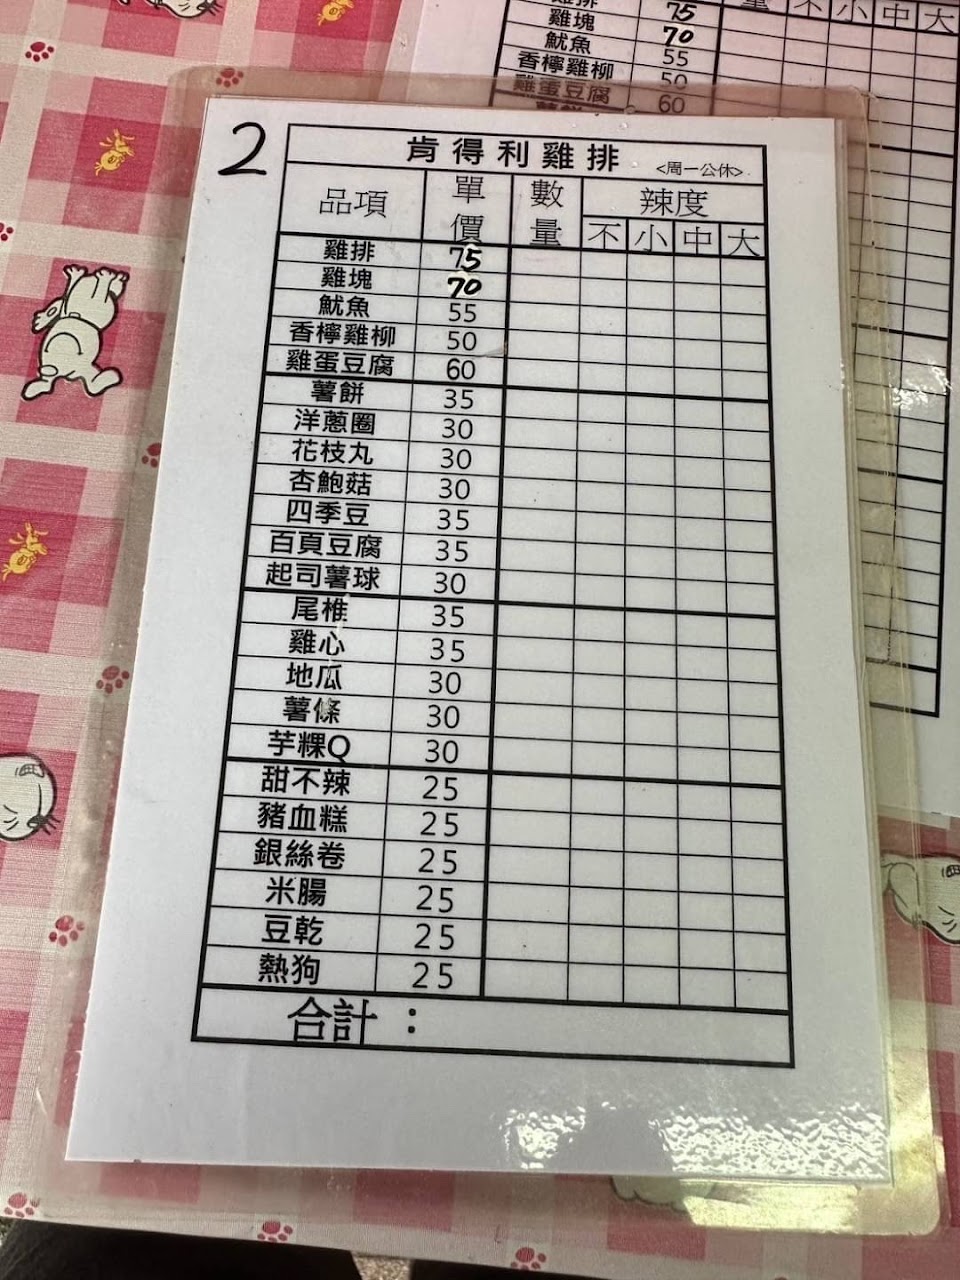 雞排 75
雞塊 70
魷魚 55
香檸雞柳 50
雞蛋豆腐 60
量 不 小 中 大
2
肯得利雞排 <周一公休>
品項 單價 數量 辣度
不 小 中 大
雞排 75
雞塊 70
魷魚 55
香檸雞柳 50
雞蛋豆腐 60
薯餅 35
洋蔥圈 30
花枝丸 30
杏鮑菇 30
四季豆 35
百頁豆腐 35
起司薯球 30
尾椎 35
雞心 35
地瓜 30
薯條 30
芋粿Q 30
甜不辣 25
豬血糕 25
銀絲卷 25
米腸 25
豆乾 25
熱狗 25
合計：